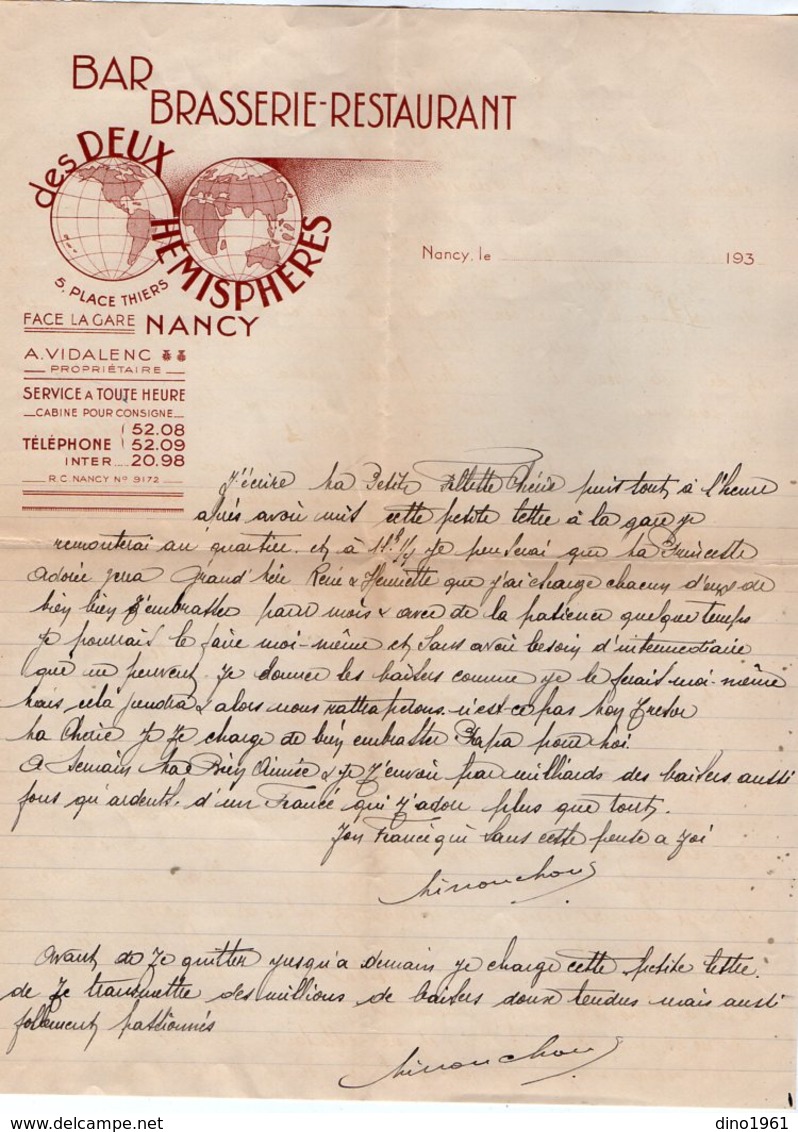 BAR
BRASSERIE-RESTAURANT
des DEUX
HÉMISPHÈRES
5, PLACE THIERS
FACE LA GARE NANCY
Nancy, le 193
A. VIDALENC
PROPRIÉTAIRE
SERVICE A TOUTE HEURE
CABINE POUR CONSIGNE
TÉLÉPHONE 52.08
52.09
INTER 20.98
R.C. NANCY No 9172
T'écrire Ma Petite Fillette Chérie puis tout à l'heure
après avoir mis cette petite lettre à la gare je
remonterai au quartier et à 11h 1/2 je penserai que Ma Princesse
adorée sera Grand'Mère René & Henriette que j'ai chargé chacun d'eux de
bien bien t'embrasser pour mois & avec de la patience quelque temps
je pourrais le faire moi-même et sans avoir besoin d'intermédiaire
que ne peuvent Te donner les baisers comme je le ferais moi-même
Mais cela viendra & alors nous rattraperons n'est-ce pas Mon Trésor
Ma Chérie je Te charge de bien embrasser Papa pour Moi
A Demain Ma Bien Aimée & je T'envoie par milliards des baisers aussi
fous qu'ardents d'un Francé qui T'adore plus que tout.
Ton Francé qui sans cesse pense a Toi
Avant de Te quitter jusqu'a demain je charge cette petite lettre
de Te transmettre des millions de baisers doux tendres mais aussi
follement passionnés
dino1961